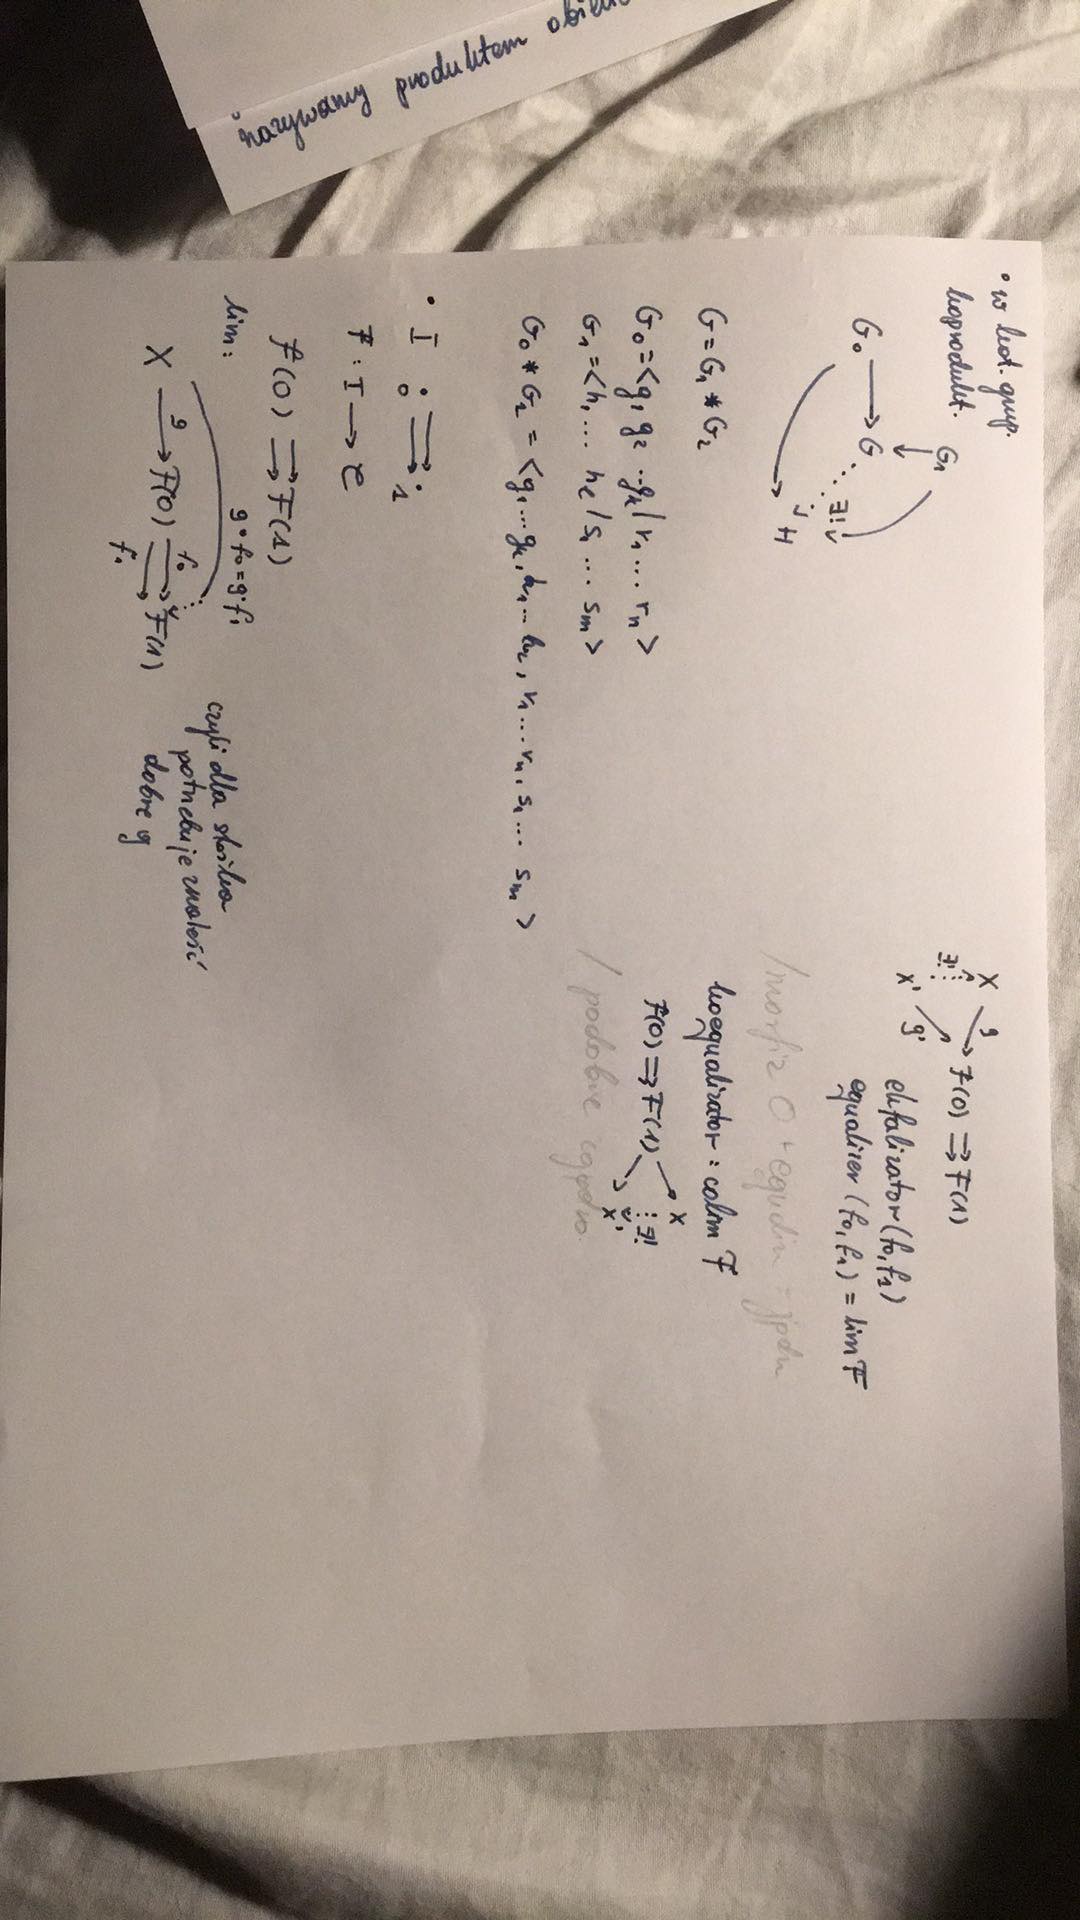 nazywamy produktem
• w kat. grup.
koprodukt.
G₁
G₀ → G
∃!
H
G = G₁ * G₂
G₀ = <g₁ g₂ ... gₖ / r₁ ... rₙ>
G₁ = <h₁ ... hₗ / s₁ ... sₘ>
G₀ * G₂ = <g₁ ... gₖ, h₁ ... hₗ, r₁ ... rₙ, s₁ ... sₘ>
• I : 0 ⇉ 1
F : I → C
F(0) ⇉ F(1)
lim:
g∘f₀ = g∘f₁
X → F(0) ⇉ F(1)
g f₀ f₁
czyli dla stożka
potrzebuję znaleść
dobre g
X g → F(0) ⇉ F(1)
∃!
X' g'
ekfalizator (f₀, f₁)
equaliser (f₀, f₁) = lim F
/morfiz 0 +
koequalizator : colim F
F(0) ⇉ F(1)
X
∃!
X'
/ podobne